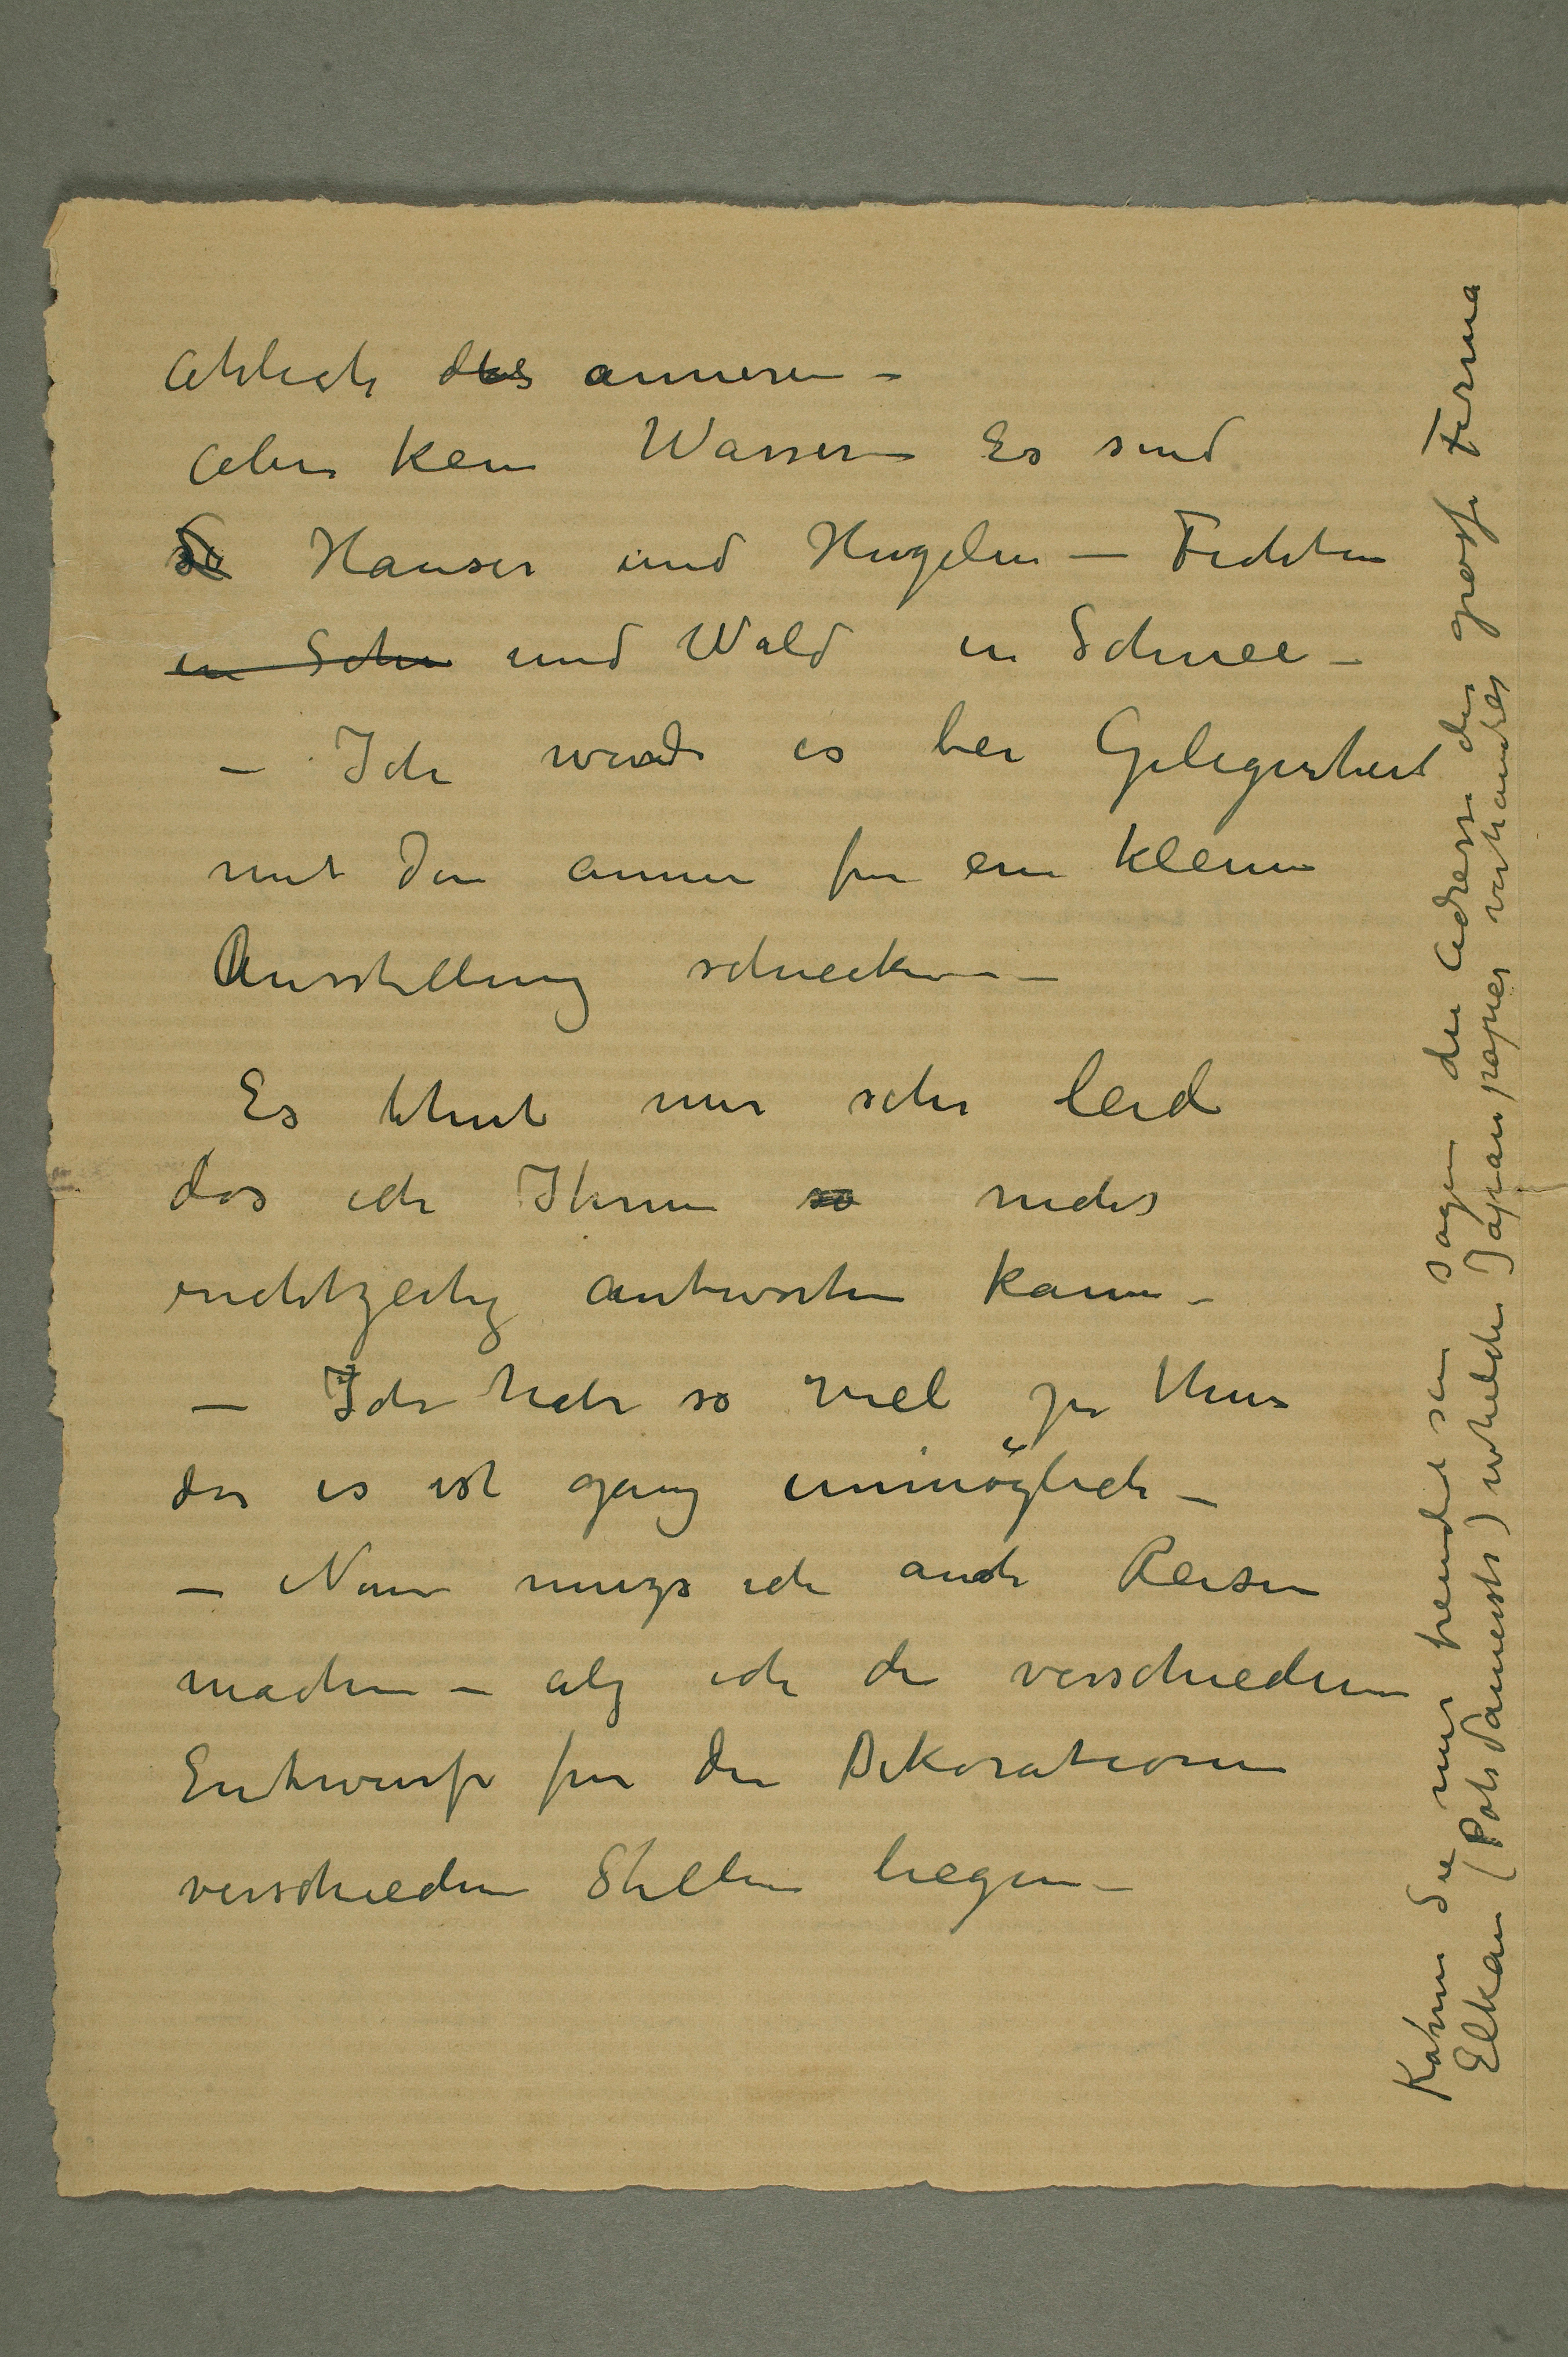 ahlich des anneren –
Aber kein Wasser Es sind
Hauser und Hugelen – Fichten
in Schn und Wald in Schnee –
– Ich werde es bei Gelegenheit
mit den annen fur ein kleine
Ausstellung schicken –
Es thut mir sehr leid
das ich Ihnen so nicht
richtzeitig antworten kann –
– Ich habe so viel zu thun
das es ist ganz unmöglich –
– Nun muzs ich auch Reisen
machen – alz ich die verschiedene
Entwurfe fur die Dekorationen
verschieden Stellen liegen –
Kahnn Sie mir sagen die Adresse der grosse Firma
Elkan (Potsdamerstr) whelche Japanpapier verhandles